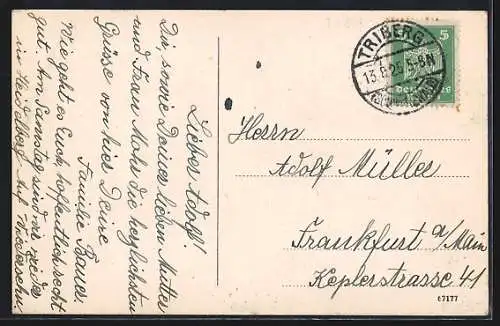 Lieber Adolf!
Dir sowie Deiner lieben Mutter
und Frau Mohr die herzlichsten
Grüsse von hier Deine
Familie Bauer.
Wie geht es Euch, hoffentlich recht
gut. Am Samstag sind wir wieder
in Heidelberg. Auf Wiedersehn.
TRIBERG
13.6.25. 5-6N
5
Deutsches
Herrn
Adolf Müller
Frankfurt a/Main
Keplerstrasse 41
67177